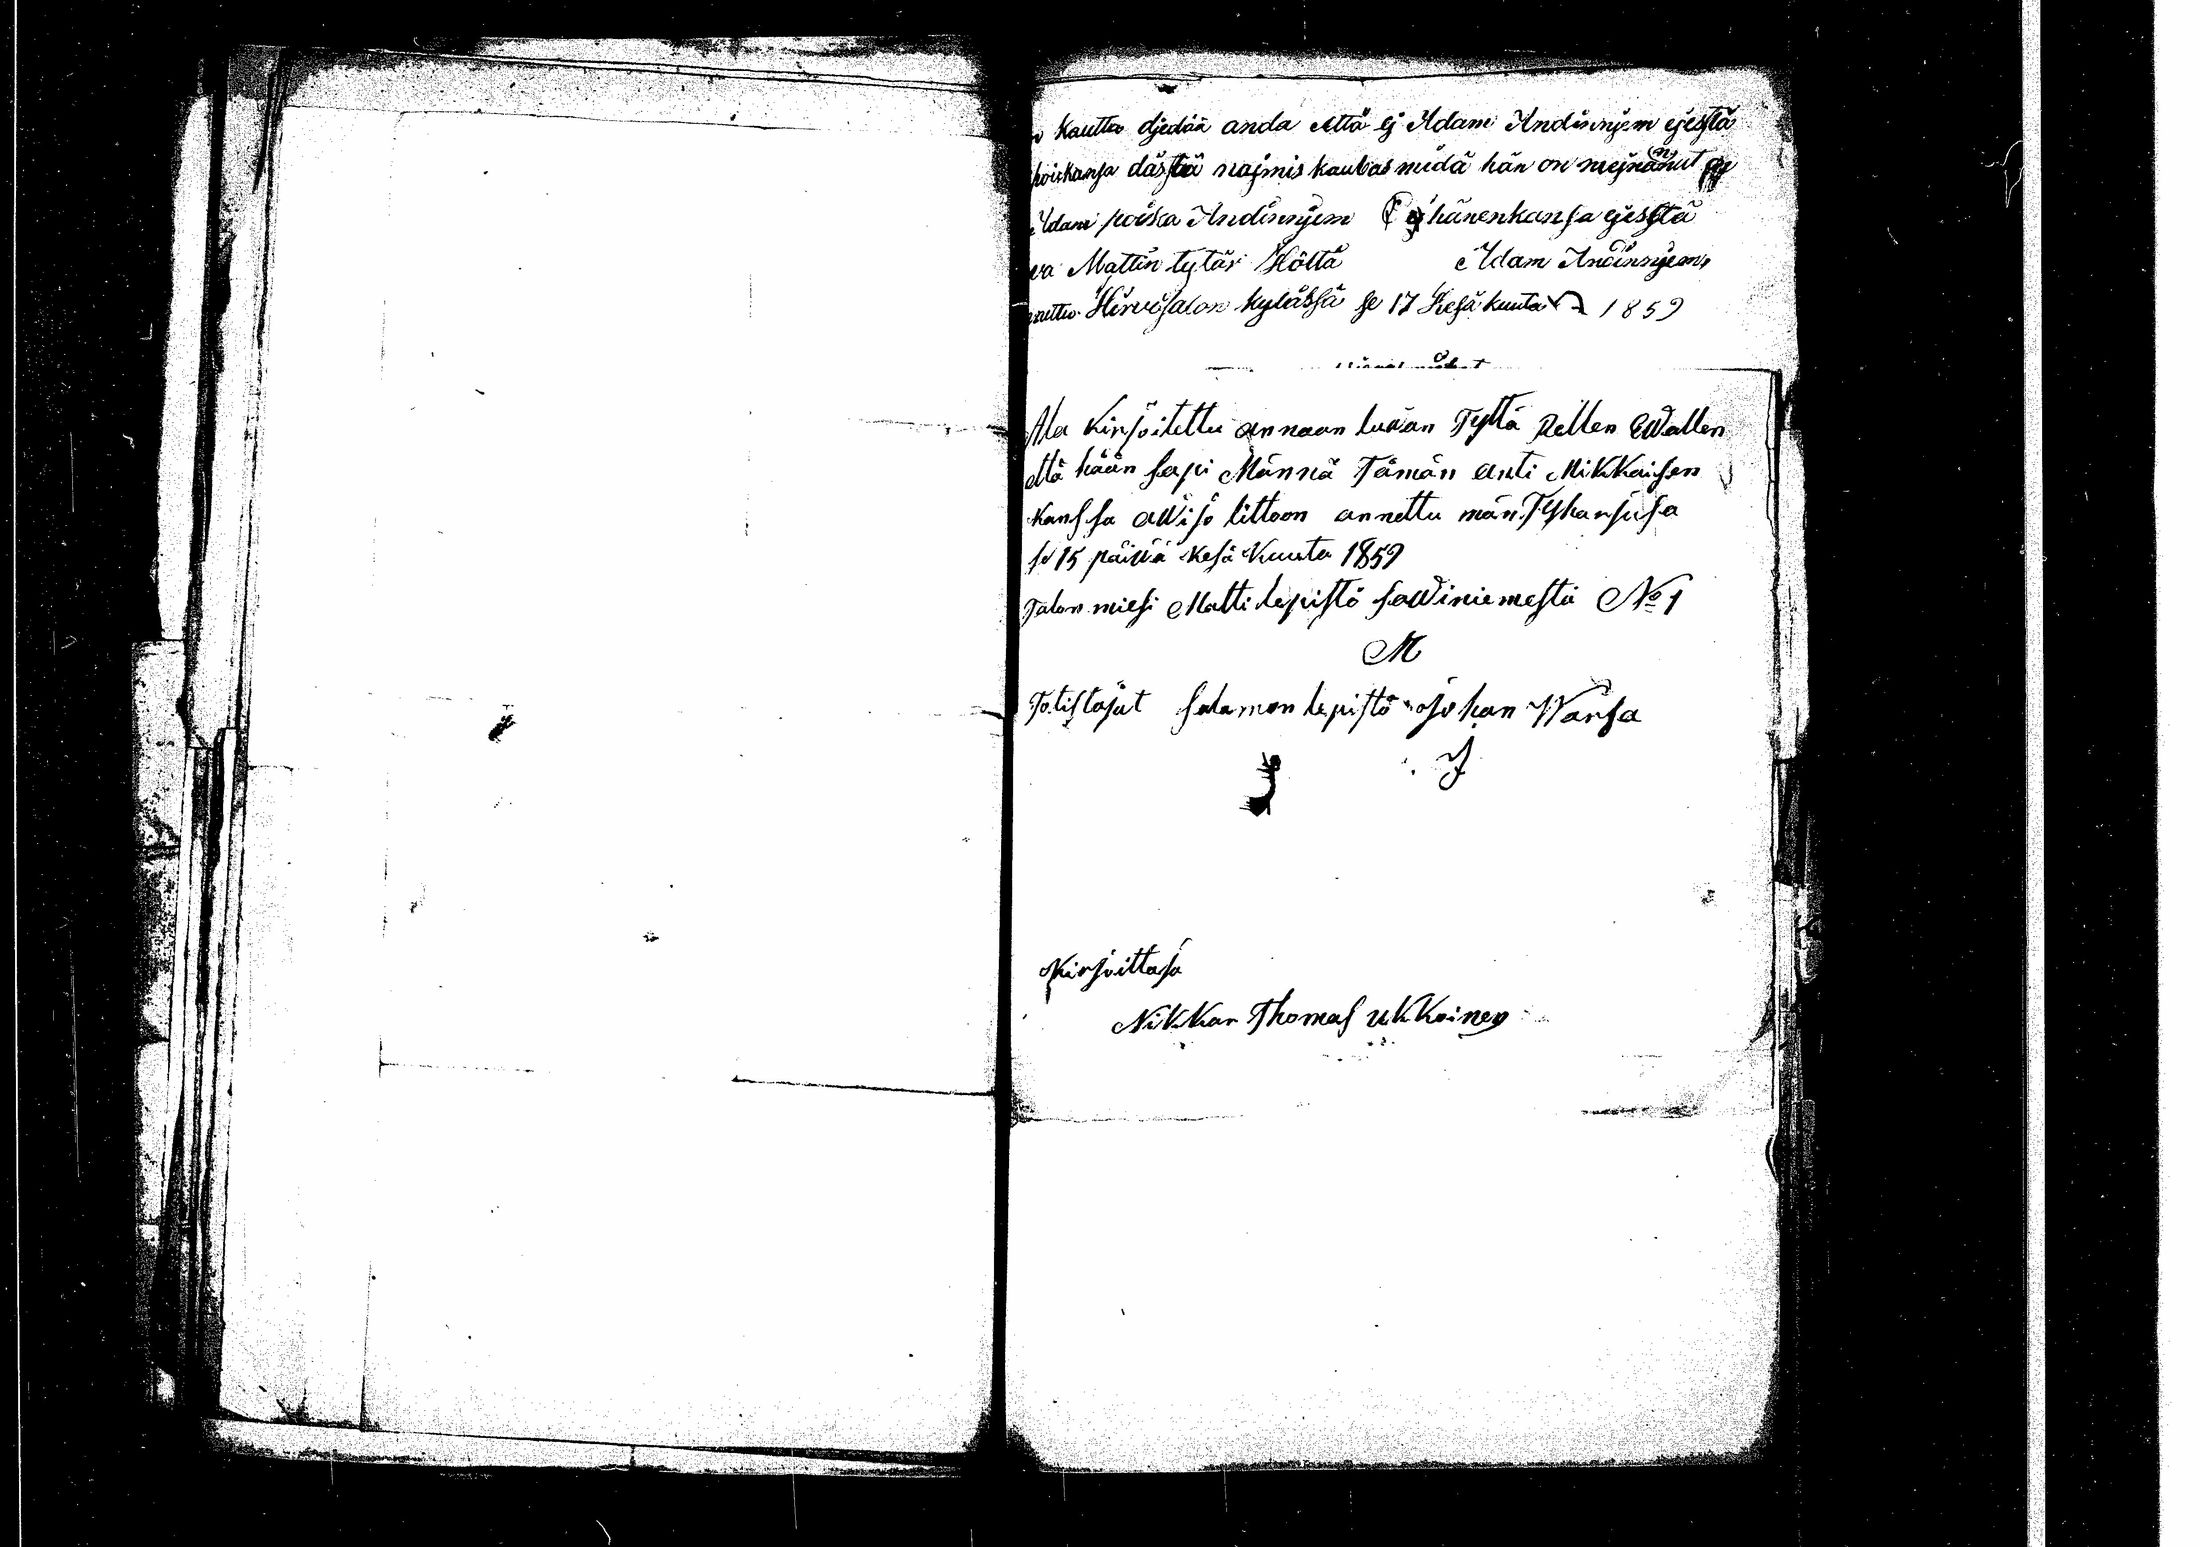 Kautta djedää anda että ej Adam Andinnjem ejestä
poickansa dästä najmis kaubas midä hän on mejnänut
Adam poika Andinnjem ej hänenkansa ejestä
va Mattin tytär Höltä Adam Andinnjem
nettu Hirvisalon kylässä se 17 Kesä kuuta 1859
Ala Kirjoitettu annaan luvan Tyttä Rellen EWallen
että hään sapi Männä Tämän anti Mikkaisen
Kanssa aWijo littoon annettu män Tyskarjusa
se 15 päivä kesä Kuuta 1859
Talon miesi Matti lepistö saWiniemestä No 1
M
Totistajat Salamon lepistö Johan Warsa
J
Kirjoittaja
Nikkar Thomas ukkoinen